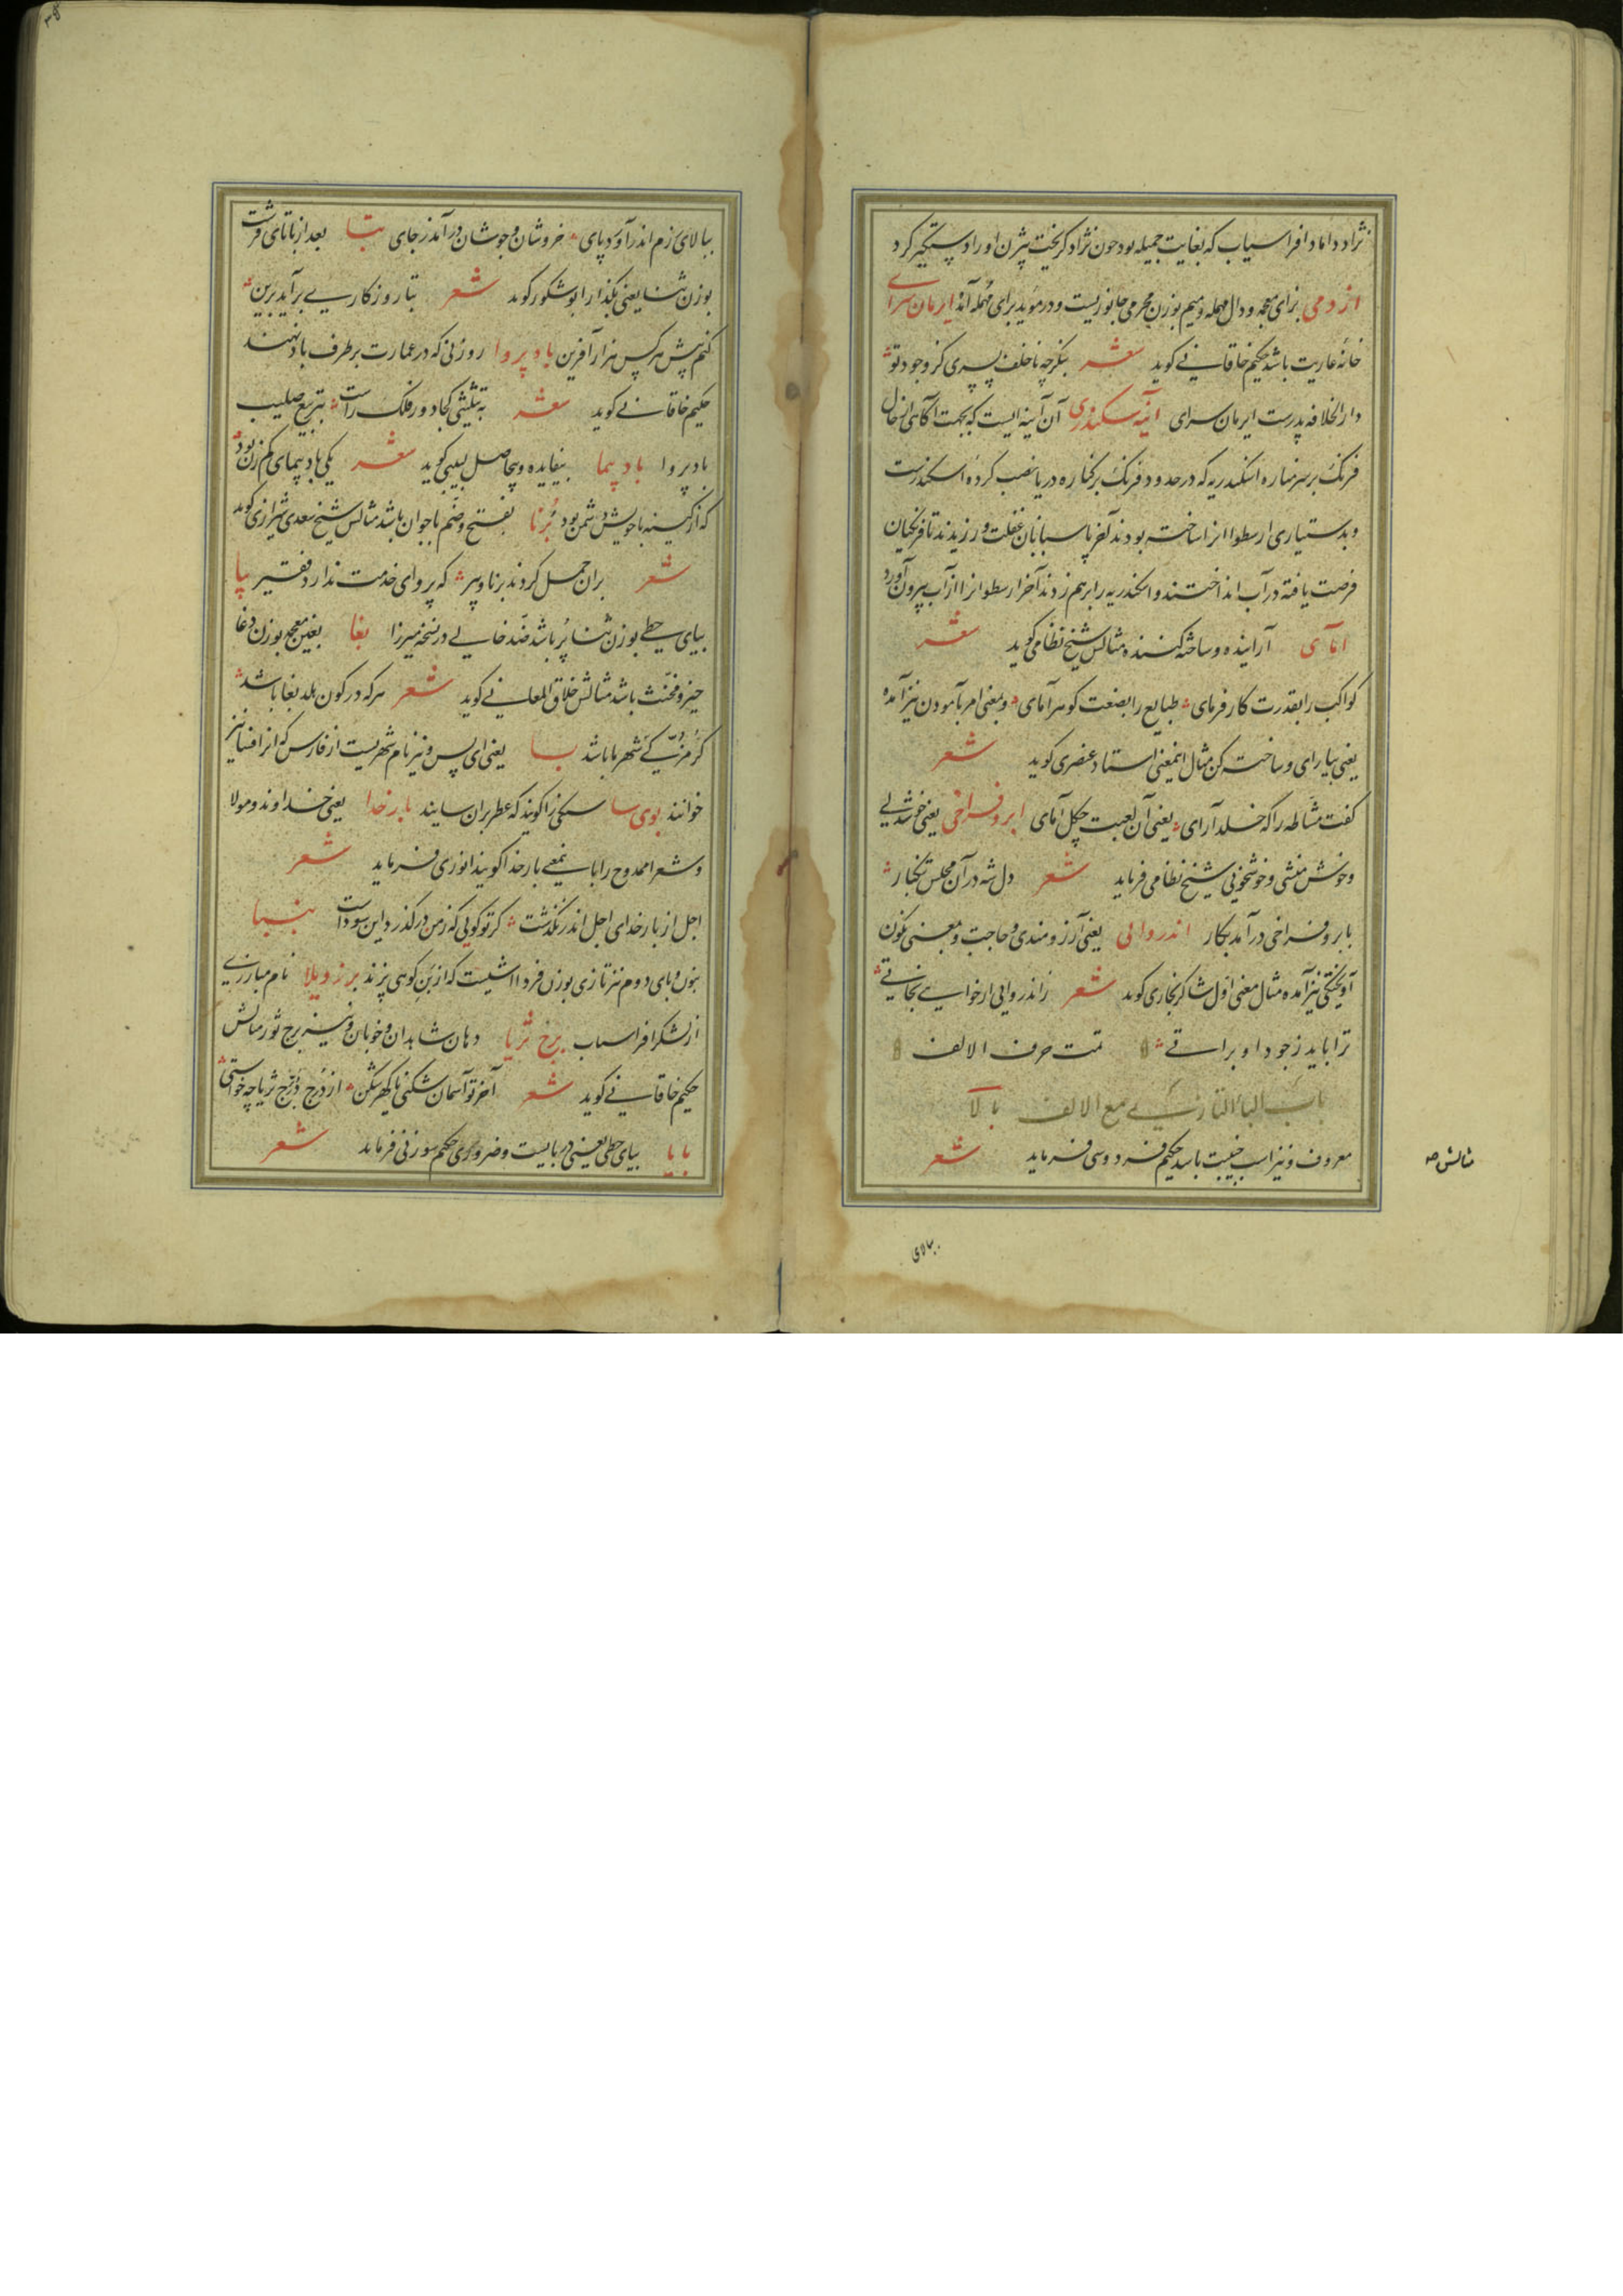 نژاد داماد افراسیاب که بغایت جمیله بود چون نژاد کریخت بیژن او را دستکیر کرد
ازدمی بزای معجمه و دال مهمله و میم بوزن محرمی جانوریست و در مؤید برای مهمله آمد ایرمان سرای
خانهٔ عاریت باشد حکیم خاقانی کوید شعر بنکر چه ناخلف پسری کز وجود تو
دارالخلافه پدرست ایرمان سرای آینه سکندری آن آینه ایست که بجهت آکاهی از حال
فرنک بر سر مناره اسکندریه که در حدود فرنک بر کناره دریا نصب کرده اسکندرست
و بدستیاری ارسطو انرا ساخته بودند آخر پاسبانان غفلت ورزیدند تا فرنکیان
فرصت یافته در آب انداختند و اسکندریه را برهم زدند آخر ارسطو انرا از آب بیرون آورد
آمای آراینده و ساخته کننده مثالش شیخ نظامی کوید شعر
کواکب را بقدرت کار فرمای طبایع را بصنعت کوهر آمای و بمعنی امر بآمودن نیز آمده
یعنی بیارای و ساخته کن مثال اینمعنی استاد عنصری کوید شعر
کفت مشاطه را که خلد آرای یعنی آن لعبت چکل آمای ابرو فراخی یعنی خوشدلی
و خوش منشی و خوشخویی شیخ نظامی فرماید شعر دل شه در آن مجلس تنکبار
بابرو فراخی در آمد بکار اندروایی یعنی آرزومندی و حاجت و بمعنی نکون
آویختکی نیز آمده مثال معنی اول شاکر بخاری کوید شعر ز اندروایی ار خواهی نجاتی
ترا باید ز جود او براتی تمت حرف الالف
باب البا التازی مع الالف بالا
معروف و نیز اسب جنیبت باشد حکیم فردوسی فرماید شعر
مثالش
ببالای
ببالای زم اندر آورد پای خروشان و جوشان در آمد ز جای بتا بعد از با تای قرشت
بوزن ثنا یعنی بکذار ابوشکور کوید شعر بتا روزکاری برآید برین
کنم پیش هر کس هزار آفرین بادپروا روزنی که در عمارت بر طرف باد نهند
حکیم خاقانی کوید شعر به تثلیثی کجا دور فلک راست بتربیع صلیب
بادپروا بادپیما بیفایده و بیحاصل لبیبی کوید شعر یکی بادپیمای کم زن بود
که از کینه با خویش دشمن بود برنا بفتح و ضم با جوان باشد مثالش شیخ سعدی شیرازی کوید
شعر بران حمل کردند برنا و پیر که پروای خدمت ندارد فقیر پیا
بیای حطی بوزن ثنا پر باشد ضد خالی در نسخه میرزا بغا بغین معجمه بوزن دغا
حیز و مخنث باشد مثالش خلاق المعانی کوید شعر هرکه در کون هلد بغا باشد
شهر ما باشد بسا یعنی ای بس و نیز نام شهریست از فارس که انرا فسا نیز
خوانند بوی سا سنکی را کویند که عطر بران سایند بارخدا یعنی خداوند و مولا
و شعرا ممدوح را باینمعنی بارخدا کویند انوری فرماید شعر
اجل از بارخدای اجل اندر نکذشت کر تو کویی که ز من در کذرد این سوداست بنبا
بنون و بای دوم نیز تازی بوزن فردا اشیست که از بن کوهی پزند برزویلا نام مبارزی
از لشکر افراسیاب برج ثریا دهان شاهدان و خوبان و نیز برج ثور مثالش
حکیم خاقانی کوید شعر آخر تو آسمان شکنی یا کهر شکن از درج در برج ثریا چه خواستی
بایا بیای حطی یعنی دربایست و ضروری حکیم سوزنی فرماید شعر